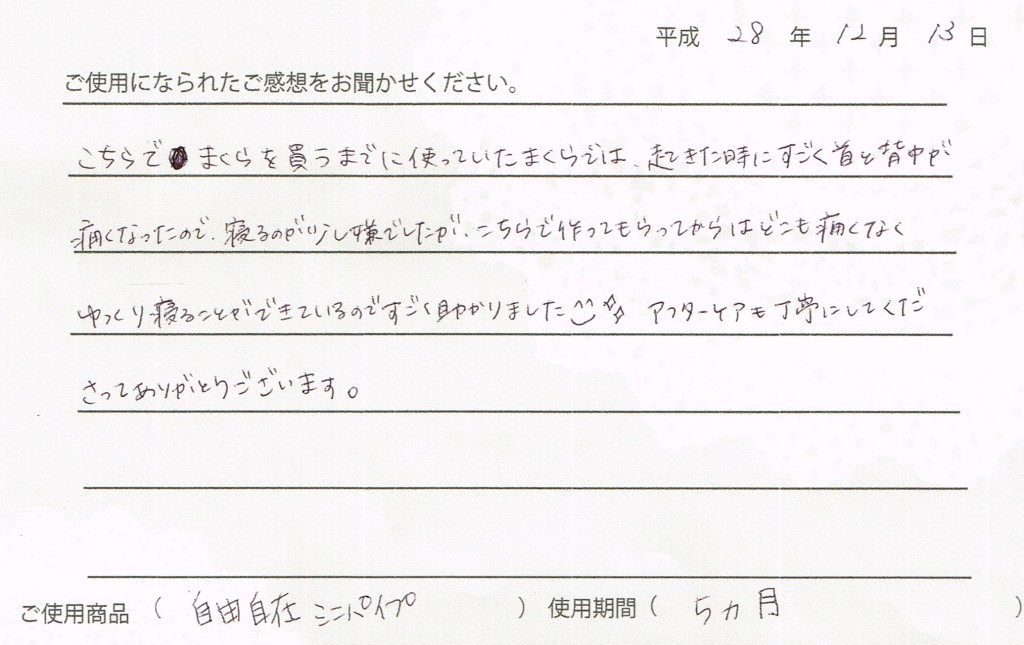 平成 28 年 12 月 13 日
ご使用になられたご感想をお聞かせください。
こちらで まくらを買うまでに使っていたまくらでは、起てきた時にすごく首と背中が
痛くなったので、寝るのが少し嫌でしたが、こちらで作ってもらってからはどこも痛くなく
ゆっくり寝ることができているのですごく助かりました アフターケアも丁寧にしてくだ
さってありがとうございます。
ご使用商品 ( 自由自在 ミニパイプ ) 使用期間 ( 5ヵ月 )